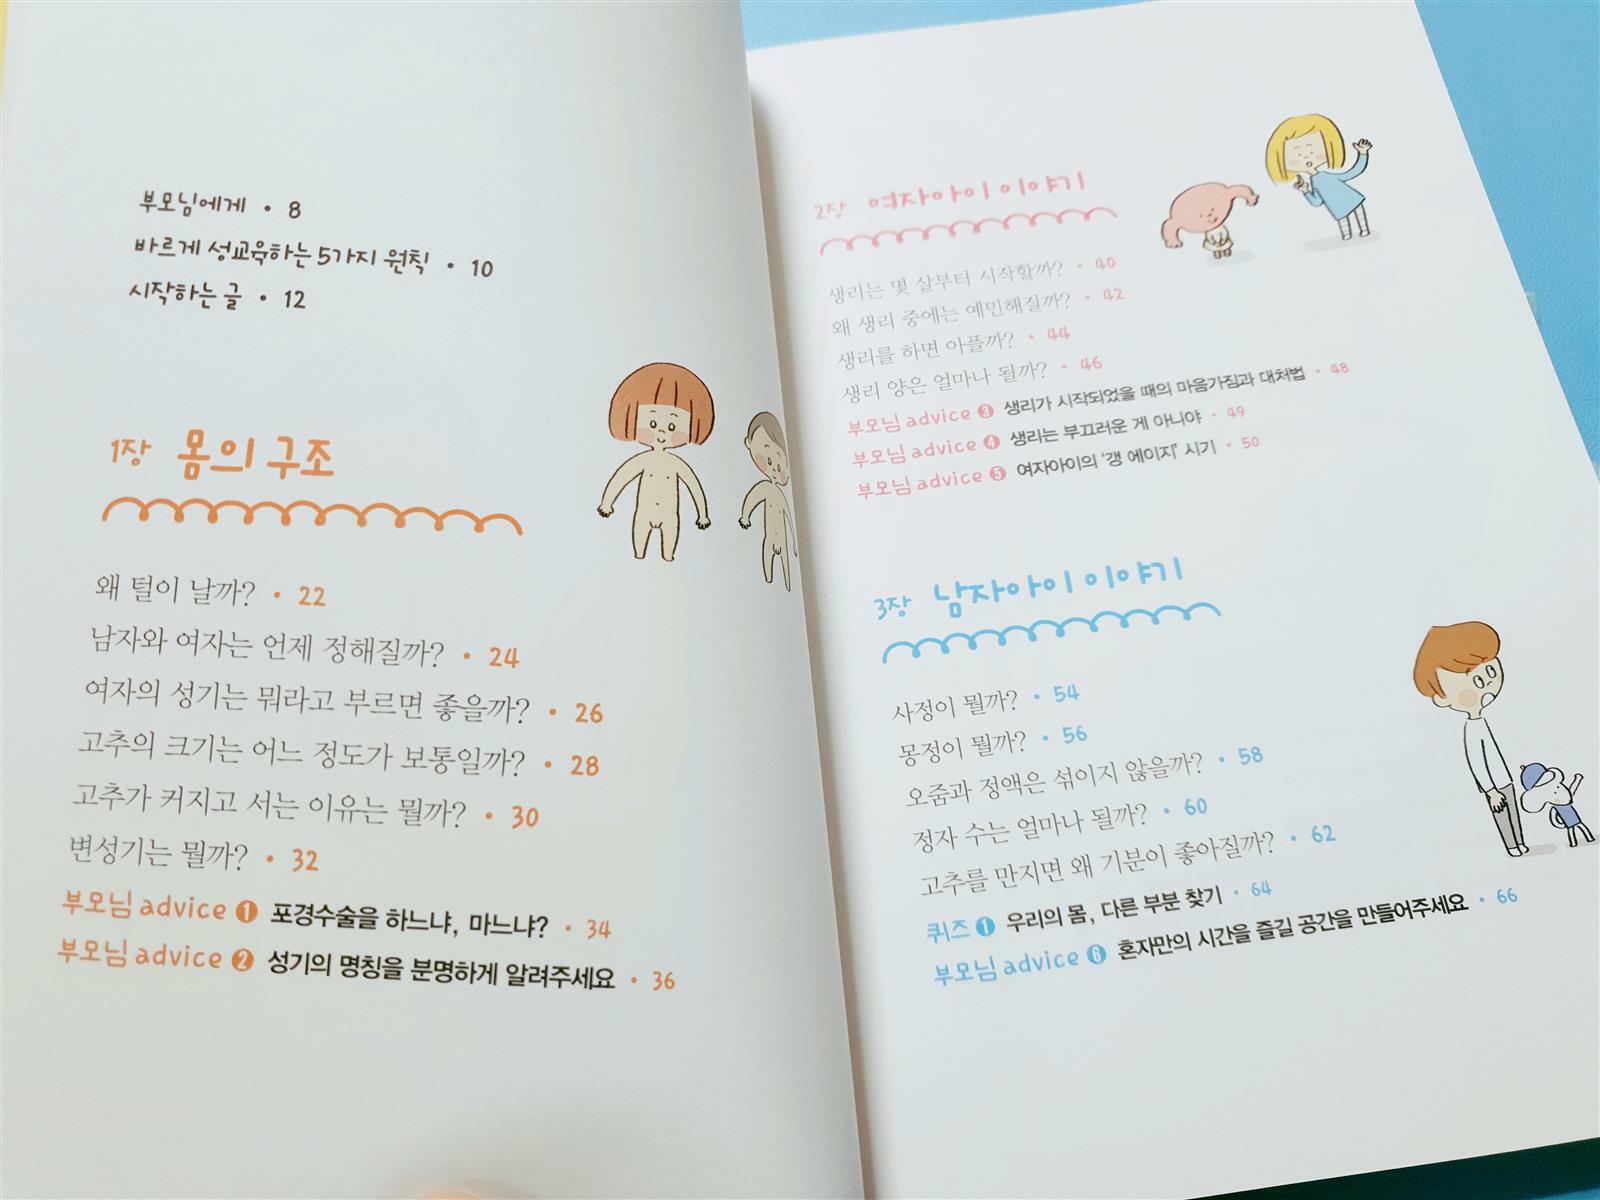 부모님에게 • 8
바르게 성교육하는 5가지 원칙 • 10
시작하는 글 • 12
1장 몸의 구조
왜 털이 날까? • 22
남자와 여자는 언제 정해질까? • 24
여자의 성기는 뭐라고 부르면 좋을까? • 26
고추의 크기는 어느 정도가 보통일까? • 28
고추가 커지고 서는 이유는 뭘까? • 30
변성기는 뭘까? • 32
부모님 advice ❶ 포경수술을 하느냐, 마느냐? • 34
부모님 advice ❷ 성기의 명칭을 분명하게 알려주세요 • 36
2장 여자아이 이야기
생리는 몇 살부터 시작할까? • 40
왜 생리 중에는 예민해질까? • 42
생리를 하면 아플까? • 44
생리 양은 얼마나 될까? • 46
부모님 advice ❸ 생리가 시작되었을 때의 마음가짐과 대처법 • 48
부모님 advice ❹ 생리는 부끄러운 게 아니야 • 49
부모님 advice ❺ 여자아이의 '갱 에이지' 시기 • 50
3장 남자아이 이야기
사정이 뭘까? • 54
몽정이 뭘까? • 56
오줌과 정액은 섞이지 않을까? • 58
정자 수는 얼마나 될까? • 60
고추를 만지면 왜 기분이 좋아질까? • 62
퀴즈 ❶ 우리의 몸, 다른 부분 찾기 • 64
부모님 advice ❻ 혼자만의 시간을 즐길 공간을 만들어주세요 • 66